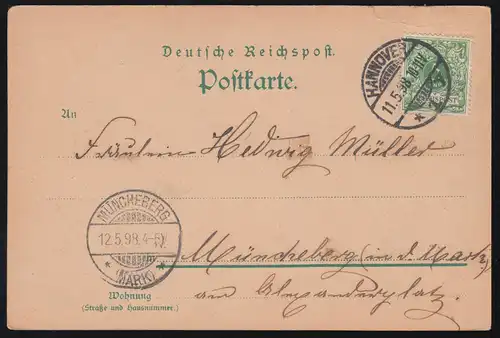 Deutsche Reichspost.
Postkarte.
HANNOVER
11.5.98.
An
Fräulein Hedwig Müller
MÜNCHEBERG
12.5.98.4-5N
(MARK)
Müncheberg (in d. Mark)
am Alexanderplatz.
Wohnung
(Straße und Hausnummer.)